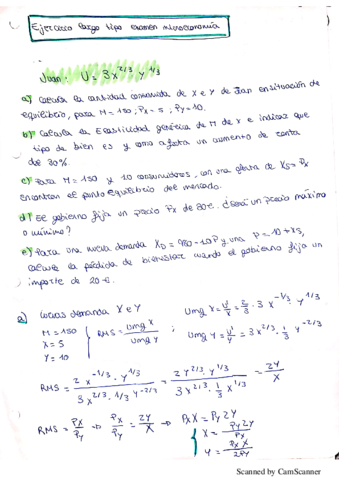 Ejercicio largo tipo examen microeconomía
Juan: U = 3x^2/3 y^1/3
a) Calcula la cantidad consumida de X e Y de Juan en situación de
equilibrio, para M = 150, Px = 5, Py = 10.
b) Calcula la Elasticidad genérica de M de x e indica que
tipo de bien es y como afecta un aumento de renta
del 30%.
c) Para M = 150 y 10 consumidores, con una oferta de Xs = Px
encontrar el punto equilibrio del mercado.
d) El gobierno fija un precio Px de 80€. ¿Será un precio máximo
o mínimo?
e) Para una nueva demanda XD = 980 - 10P y una P = 10 + Xs,
calcule la pérdida de bienestar cuando el gobierno fija un
importe de 20€.
a) demanda X e Y
M = 150
X = 5
Y = 10
RMS = Umg x / Umg y ;
Umg X = U'/X = 2/3 · 3 x^-1/3 y^1/3
Umg Y = U'/Y = 3x^2/3 · 1/3 y^-2/3
RMS = 2 x^-1/3 · y^1/3 / 3 x^2/3 · 1/3 y^-2/3 = 2 y^2/3 · y^1/3 / 3 x^2/3 · 1/3 x^1/3 = 2y / x
RMS = Px/Py ⇒ Px/Py = 2Y/X ⇒ Px X = Py 2Y
X = Py 2Y / Px
Y = Px X / 2Py
Scanned by CamScanner